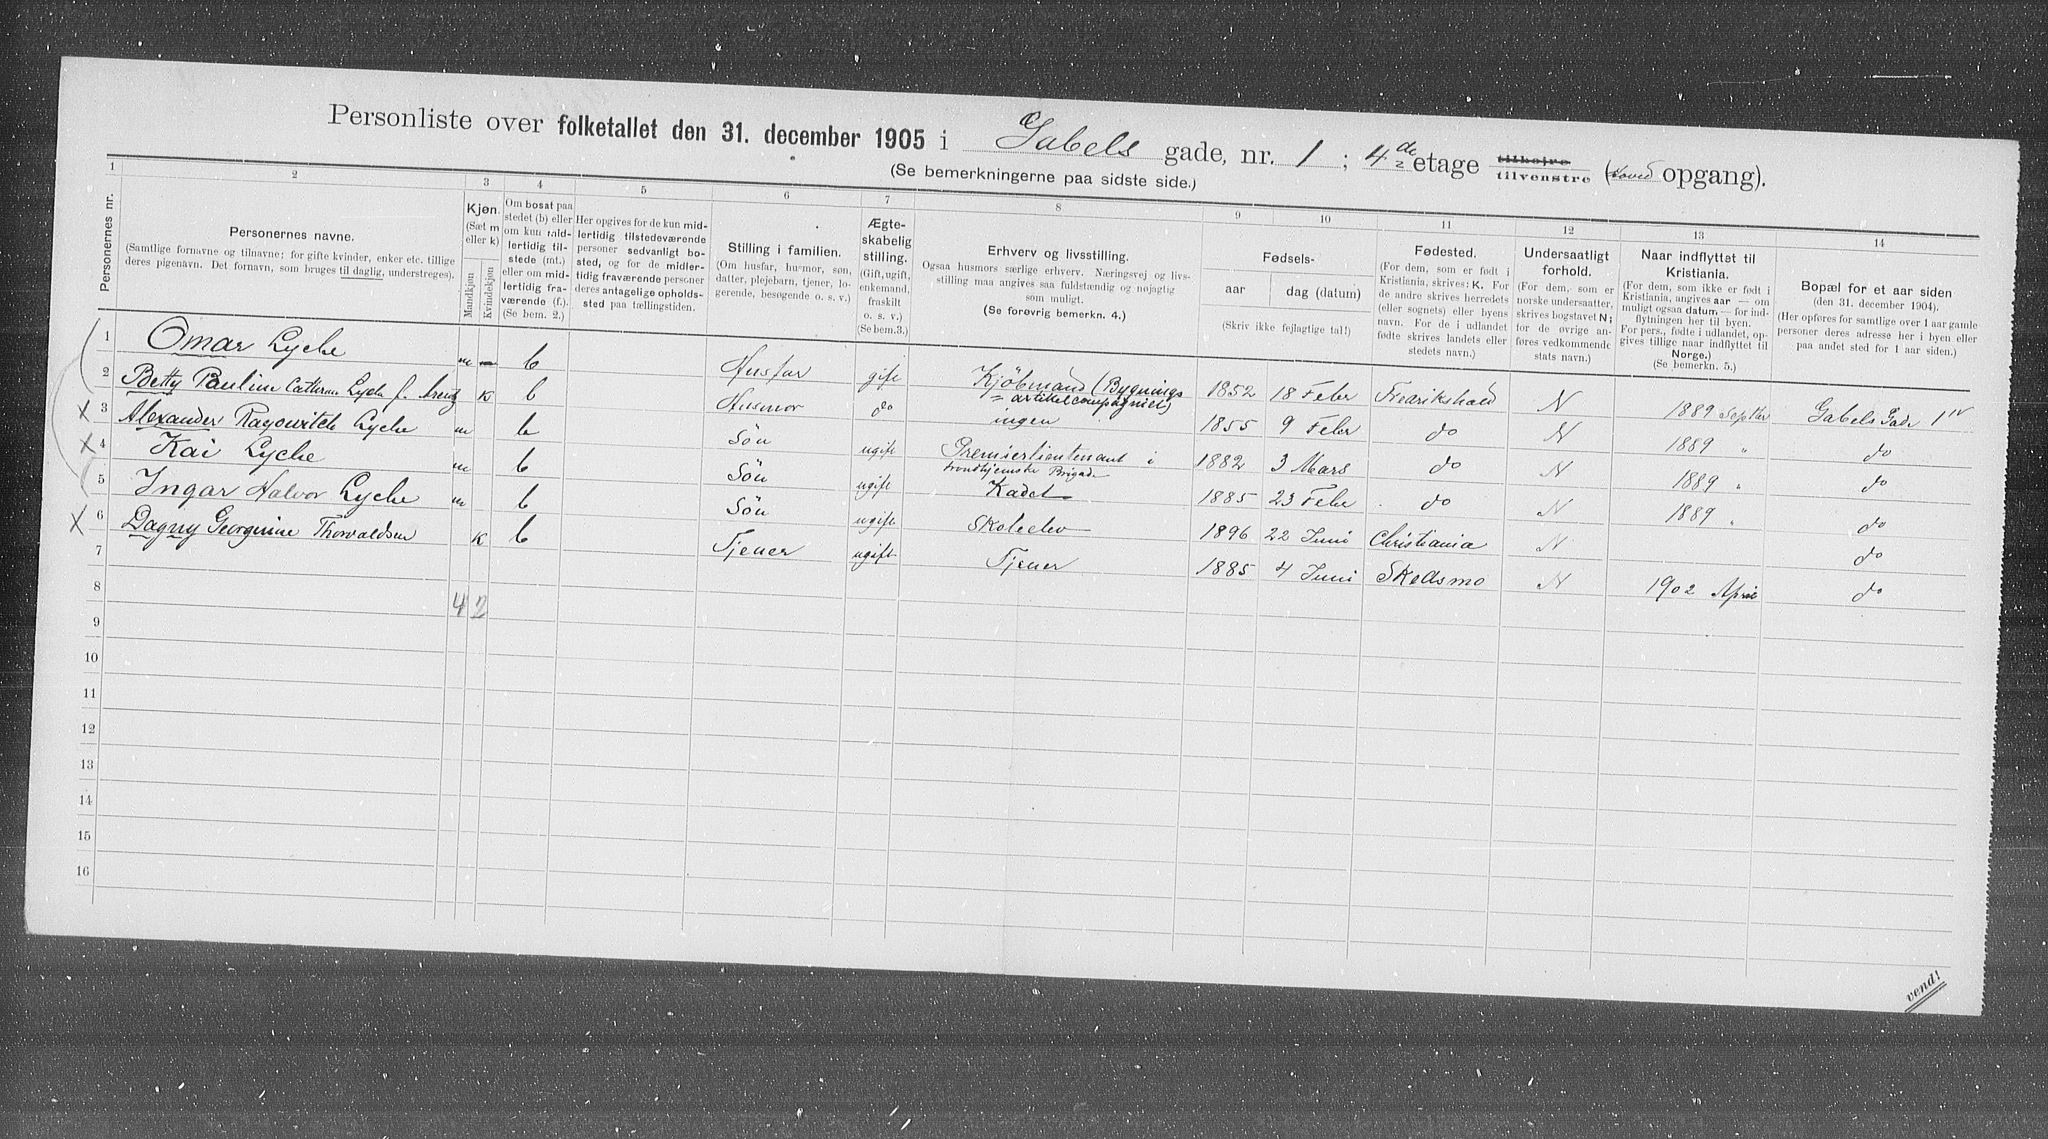 Personliste over folketallet den 31. december 1905 i Gabels gade, nr. 1 ; 4 de etage tilhøjre tilvenstre (hoved opgang).
(Se bemerkningerne paa sidste side.)
1 2 3 4 5 6 7 8 9 10 11 12 13 14
Personernes nr.
Personernes navne.
(Samtlige fornavne og tilnavne; for gifte kvinder, enker etc. tillige
deres pigenavn. Det fornavn, som bruges til daglig, understreges).
Kjøn.
(Sæt m
eller k)
Mandkjøn
Kvindekjøn
Om bosat paa
stedet (b) eller
om kun midlertidig til-
stede (mt.)
eller om mid-
lertidig fra-
værende (f.).
(Se bem. 2.)
Her opgives for de kun mid-
lertidig tilstedeværende
personer sedvanligt bo-
sted, og for de midler-
tidig fraværende personer
deres antagelige opholds-
sted paa tællingstiden.
Stilling i familien.
(Om husfar, husmor, søn,
datter, plejebarn, tjener, lo-
gerende, besøgende o. s. v.)
Ægte-
skabelig
stilling.
(Gift, ugift,
enkemand,
fraskilt
o. s. v.)
(Se bem. 3.)
Erhverv og livsstilling.
Ogsaa husmors særlige erhverv. Næringsvej og livs-
stilling maa angives saa fuldstændig og nøjagtig
som muligt.
(Se forøvrig bemerkn. 4.)
Fødsels-
aar
dag (datum)
(Skriv ikke fejlagtige tal!)
Fødested.
(For dem, som er født i
Kristiania, skrives: K. For
de andre skrives herredets
(eller sognets) eller byens
navn. For de i udlandet
fødte skrives landets eller
stedets navn.)
Undersaatligt
forhold.
(For dem, som er
norske undersaatter,
skrives bogstavet N;
for de øvrige an-
føres vedkommende
stats navn.)
Naar indflyttet til
Kristiania.
(For dem, som ikke er født i
Kristiania, angives aar — om
muligt ogsaa datum — for ind-
flytningen her til byen.
For pers., fødte i udlandet, op-
gives tillige naar indflyttet til
Norge.)
(Se bemerkn. 5.)
Bopæl for et aar siden
(den 31. december 1904).
(Her opføres for samtlige over 1 aar gamle
personer deres adresse her i byen eller
paa andet sted for 1 aar siden.)
1 Omar Lyche m b Husfar gift Kjöbmand (Bygnings
artikelcompagniet) 1852 18 Febr Fredrikshald N 1889 Septbr Gabels Gade 1 IV
2 Betty Pauline Cathrine Lyche f. Arentz k b Husmor do ingen 1855 9 Febr do N 1889 " do
3 Alexander Rayowitch Lyche m b Sön ugift Premierlieutenant i
trondhjemske Brigade 1882 3 Mars do N 1889 " do
4 Kai Lyche m b Sön ugift Kadet 1885 23 Febr do N 1889 " do
5 Ingar Halvor Lyche m b Sön ugift Skoleelev 1896 22 Juni Christiania N do
6 Dagny Georgine Thorvaldsen k b Tjener ugift Tjener 1885 4 Juni Skedsmo N 1902 April do
7
8 4 2
9
10
11
12
13
14
15
16
vend!